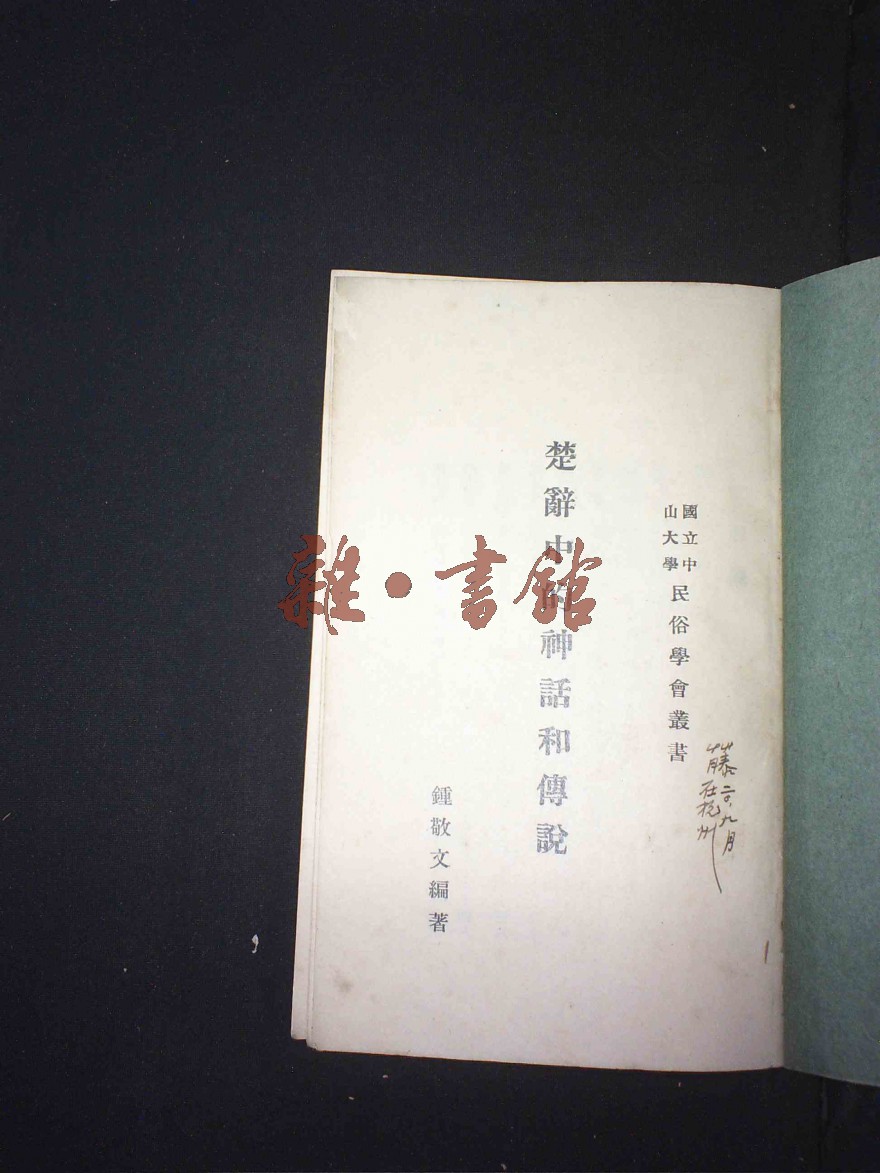 國立中山大學民俗學會叢書
楚辭中的神話和傳說
鍾敬文編著
藤二〇、九月
在杭州
雜·書館